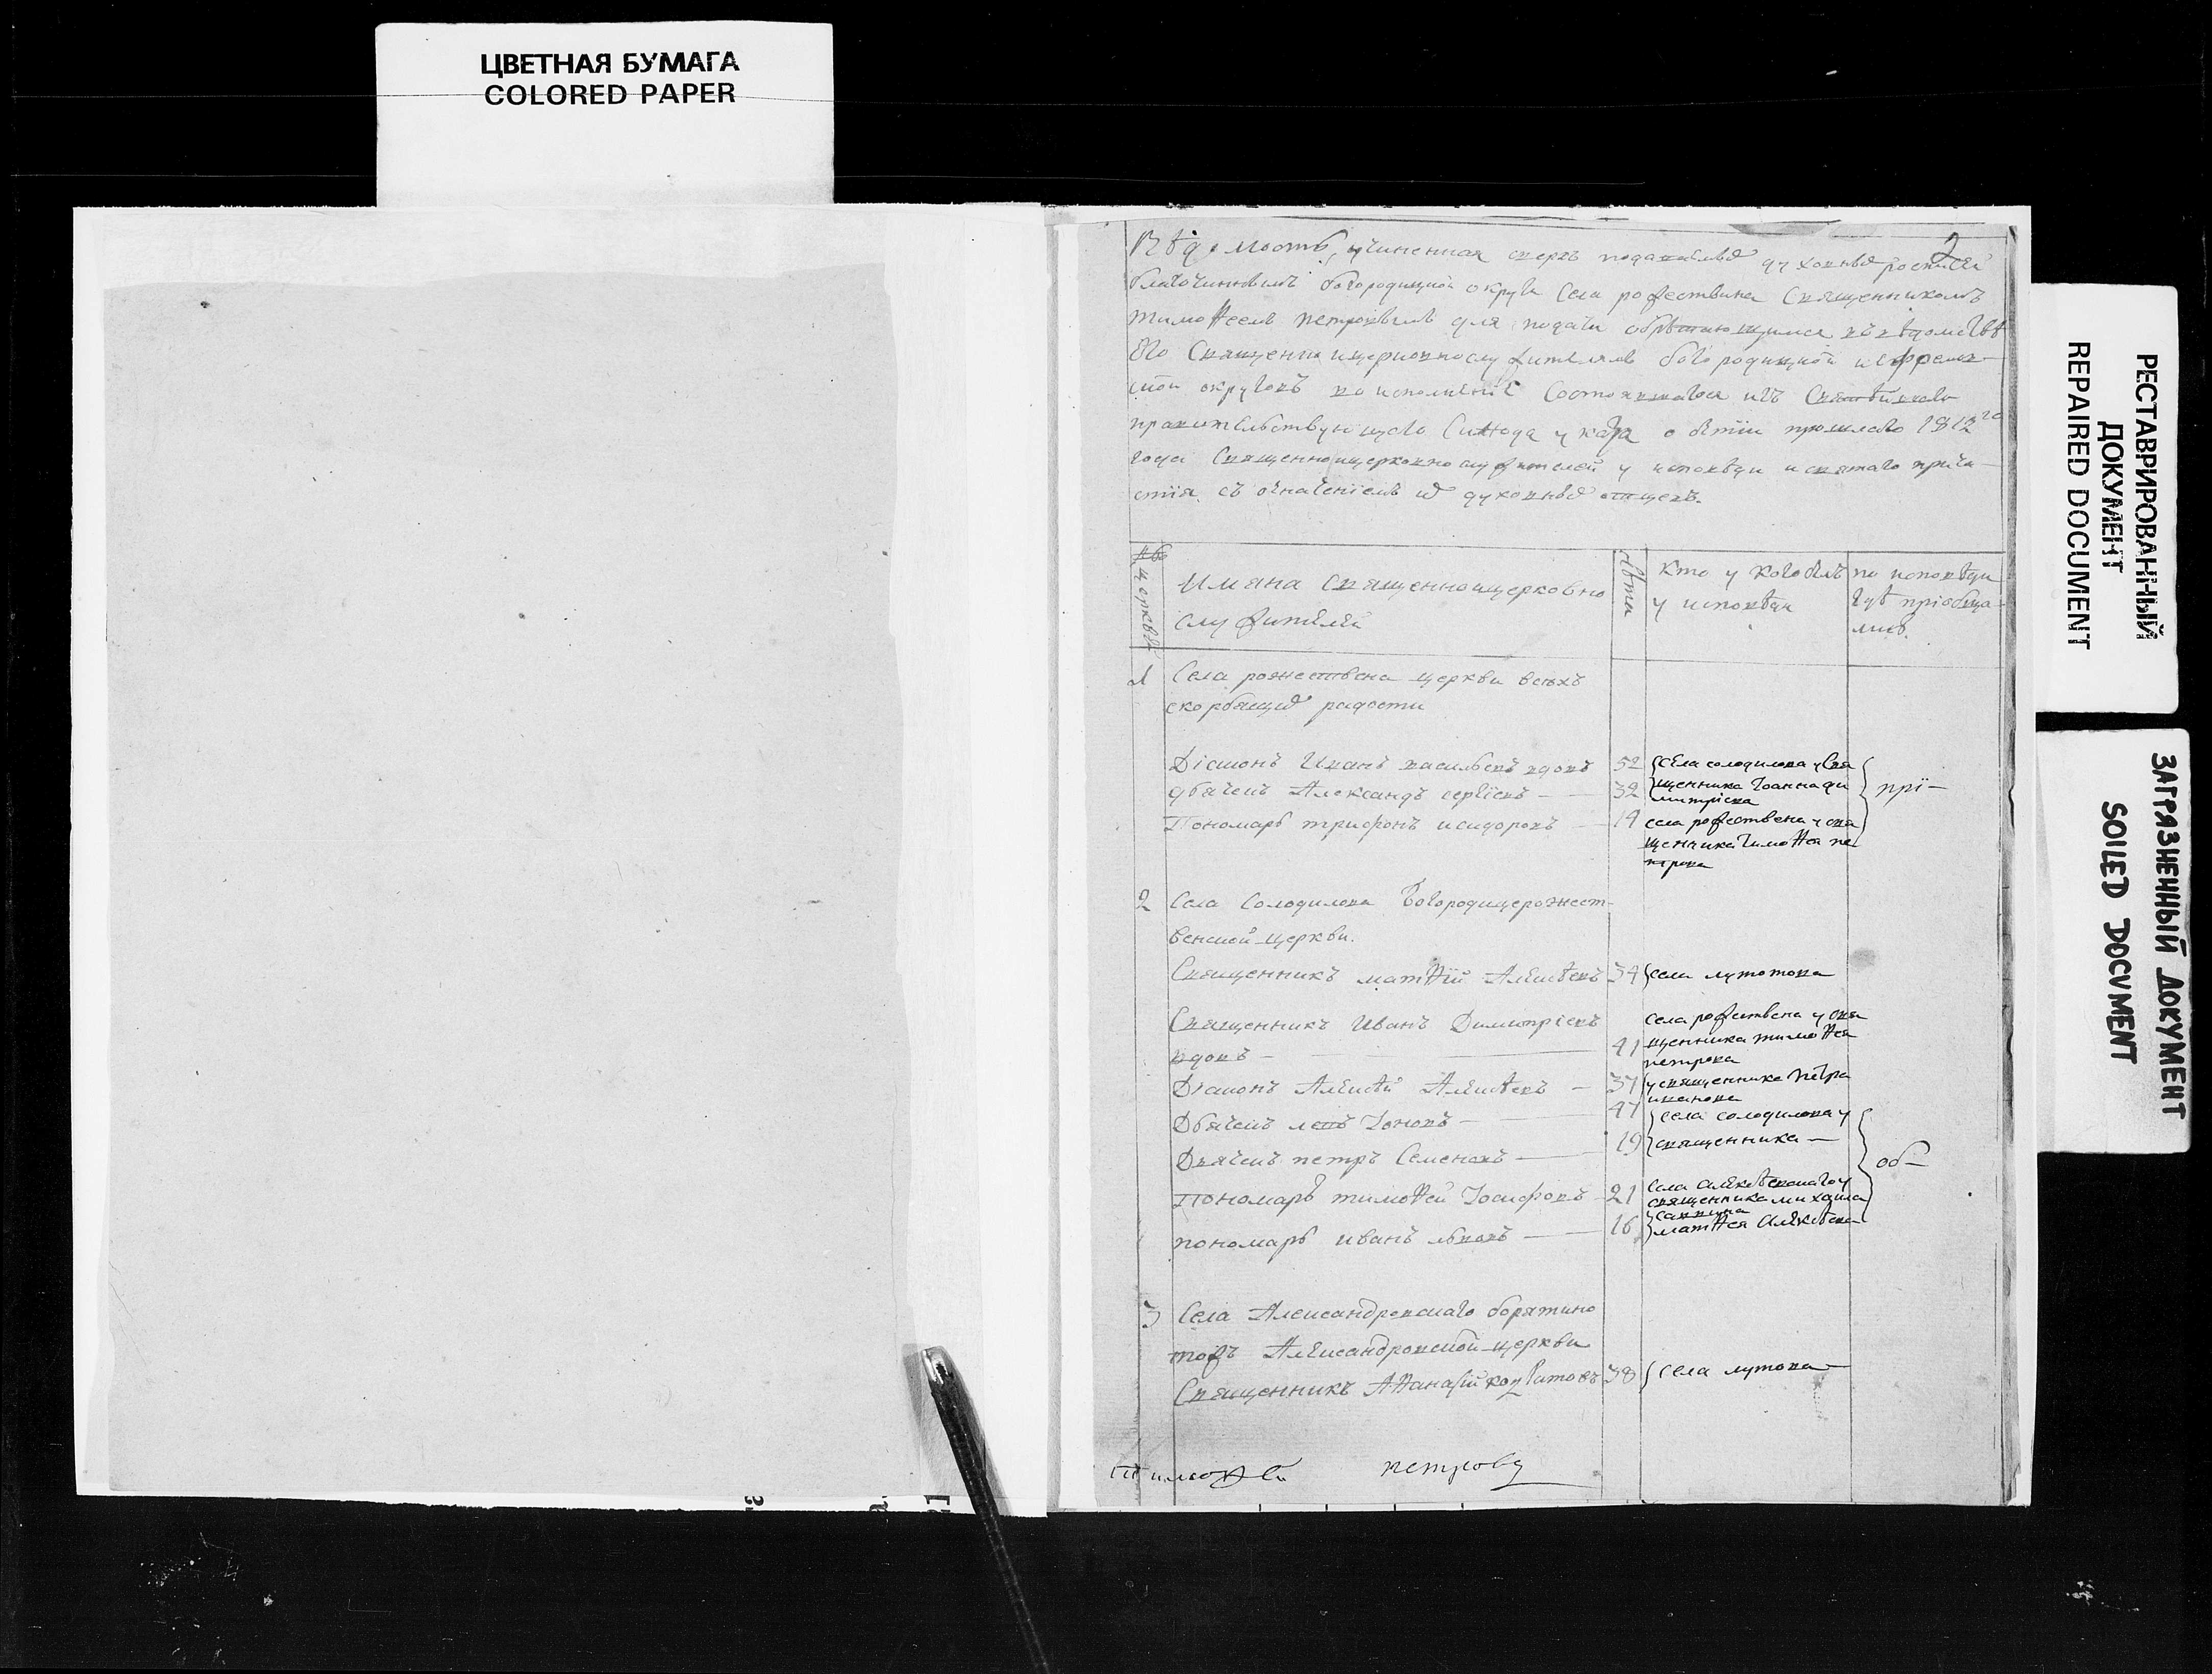 ЦВЕТНАЯ БУМАГА
COLORED PAPER
2
Вѣдомость, учиненная сверхъ подаваемыхъ духовныхъ росписей
благочиннымъ богородицкой округи села рожествина Священникомъ
тимоѳеемъ петровымъ для подачи обрѣтающимся въ вѣдомствѣ
его Священноицерковнослужителямъ богородицкой иефремов-
ской округовъ во исполненіе Состоявшагося изъ Святѣйшаго
правительствующаго Синода указа о бытіи прошлаго 1812го
года Священноицерковнослужителей у исповѣди и святаго прича-
стія съ означеніемъ ихъ духовныхъ отцевъ.
церквѣй
Имяна священноицерковно
служителей
лѣта
кто у кого былъ
у исповѣди
по исповѣди
гдѣ пріобща-
лись.
1
Села рожествена церкви всѣхъ
скорбящихъ радости
Діаконъ Иванъ васильевъ вдовъ 52 села солодилова у Свя
дьячекъ Александъ сергіевъ — 32 щенника Іоанна ди
митріева
прі—
Пономарь трифонъ исидоровъ — 19 села рожествена у свя
щенника Тимоѳея пе
трова
2 Села Солодилова Богородицерожест-
венской церкви.
Священникъ матѳій Алексѣевъ 34 села лутотова
Священникъ Иванъ Димитріевъ села рожествена у свя
вдовъ — 41 щенника тимоѳея
петрова
Діаконъ Алексѣй Алексѣевъ — 37 у священника петра
иванова
Дьячекъ левъ Іоновъ — 47 села солодилова у
Дьячекъ петръ Семеновъ — 19 священника —
об—
Пономарь тимоѳей Іосифовъ 21 села у
священника михаила
саввина
пономарь иванъ львовъ — 16 матѳея Алексѣева
3 Села Александровскаго борятино
тожъ Александровской церкви
Священникъ Аѳанасій 38 села лутова —
Тимоѳей петровъ
РЕСТАВРИРОВАННЫЙ
ДОКУМЕНТ
REPAIRED DOCUMENT
ЗАГРЯЗНЕННЫЙ ДОКУМЕНТ
SOILED DOCUMENT